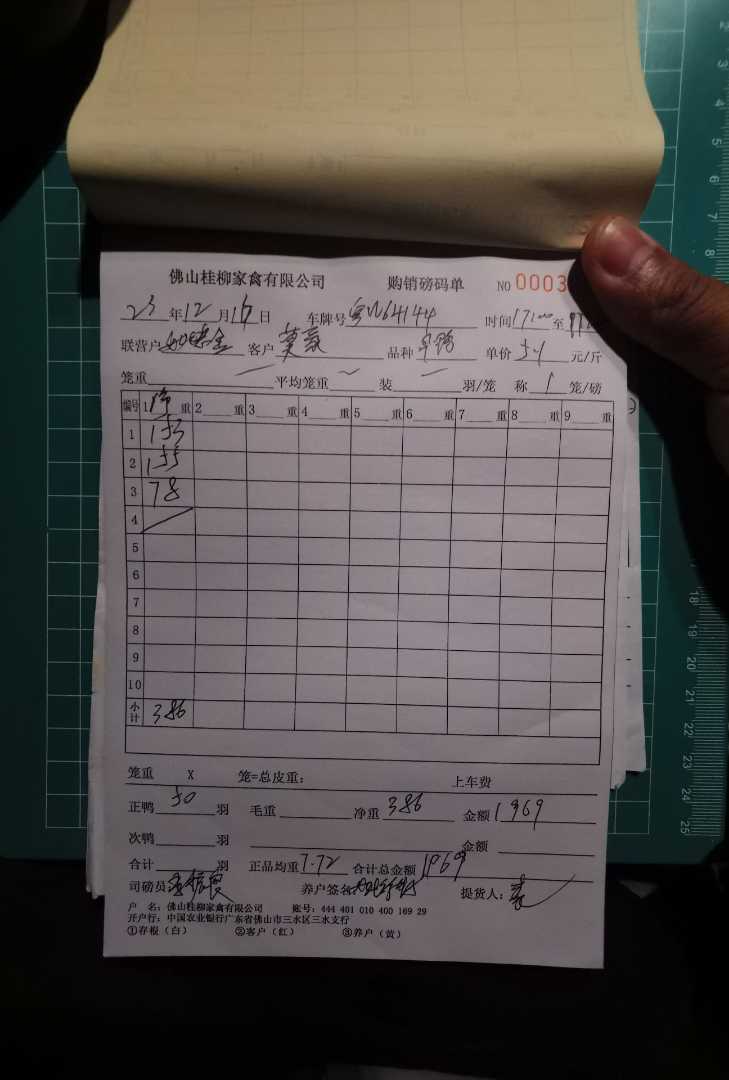 佛山桂柳家禽有限公司 购销磅码单 NO 0003
23年12月16日 车牌号粤 64144 时间17:00至
联营户 客户莫 品种 单价5.1元/斤
笼重 平均笼重 装 羽/笼 称 1 笼/磅
编号 1净重 2 重 3 重 4 重 5 重 6 重 7 重 8 重 9 重
1 153
2 155
3 78
4
5
6
7
8
9
10
小计 386
笼重 X 笼=总皮重： 上车费
正鸭 50 羽 毛重 净重 386 金额 1969
次鸭 羽 金额
合计 羽 正品均重 7.72 合计总金额 1969
司磅员 养户签名 提货人：
户 名：佛山桂柳家禽有限公司 账号：444 401 010 400 169 29
开户行：中国农业银行广东省佛山市三水区三水支行
①存根（白） ②客户（红） ③养户（黄）
2
3
4
5
6
7
8
18
19
20
21
22
23
24
25